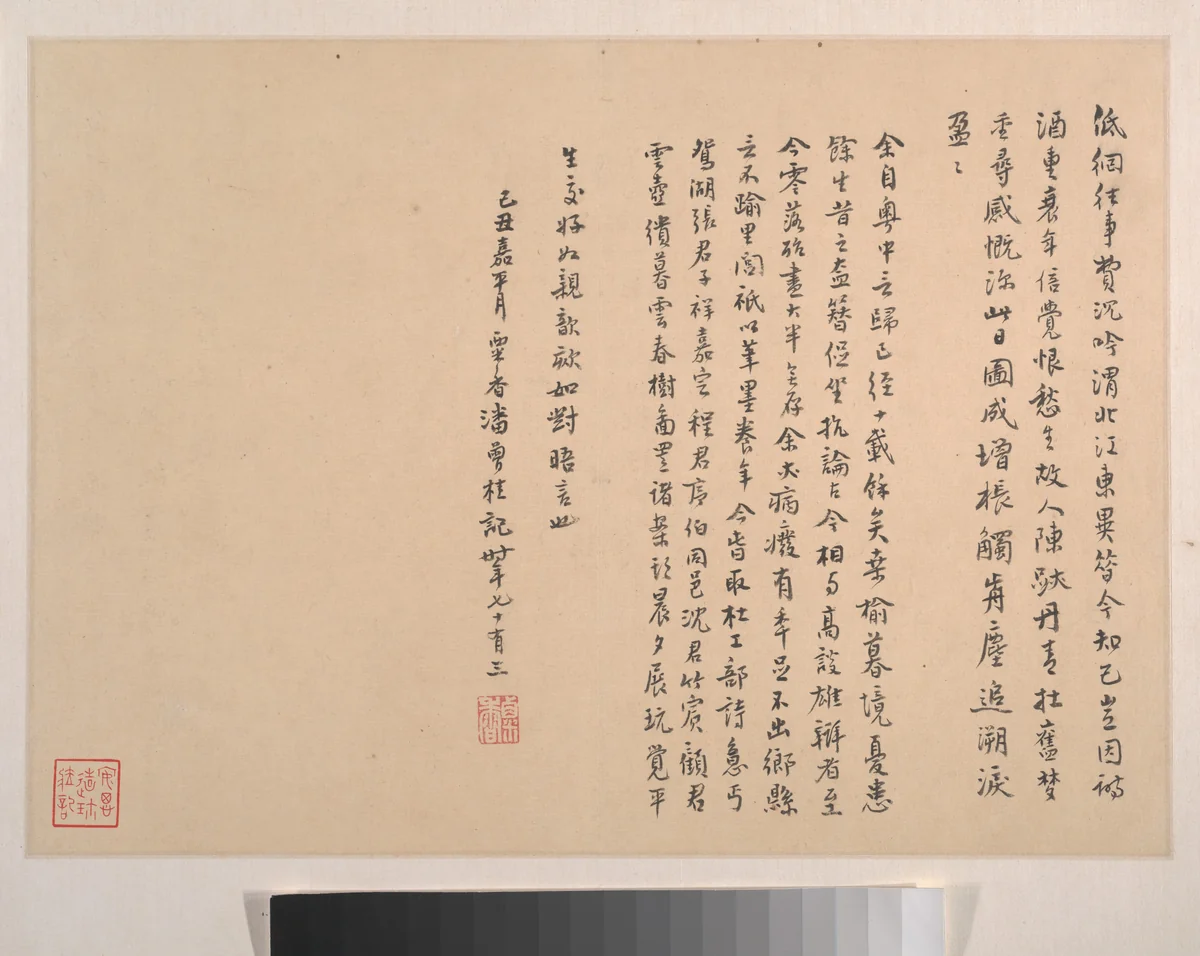 低徊往事費沉吟渭北江東異昔今知己豈因詩
酒重衰年信覺恨愁生故人陳跡丹青在舊夢
重尋感慨深此日圖成增棖觸前塵追溯淚
盈盈
余自粵中言歸已經十載餘矣桑榆暮境憂患
餘生昔之盍簪促坐抗論古今相与高談雄辯者至
今零落殆盡大半無存余亦病癈有年足不出鄉縣
言不踰里閭祇以筆墨養年今省取杜工部詩意丐
鴛湖張君子祥嘉定程君序伯同邑沈君竹賓顧君
雲壺繢暮雲春樹圖置諸案頭晨夕展玩覺平
生交好如親謦欬如對晤言也
己丑嘉平月粟香潘曾桂記時年七十有三